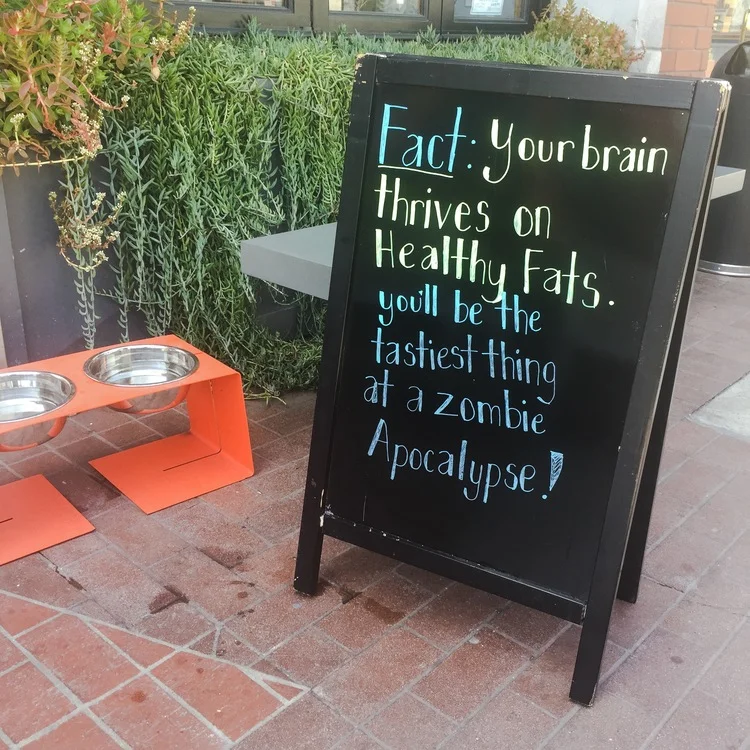 Fact: Your brain
thrives on
Healthy Fats.
you'll be the
tastiest thing
at a zombie
Apocalypse!